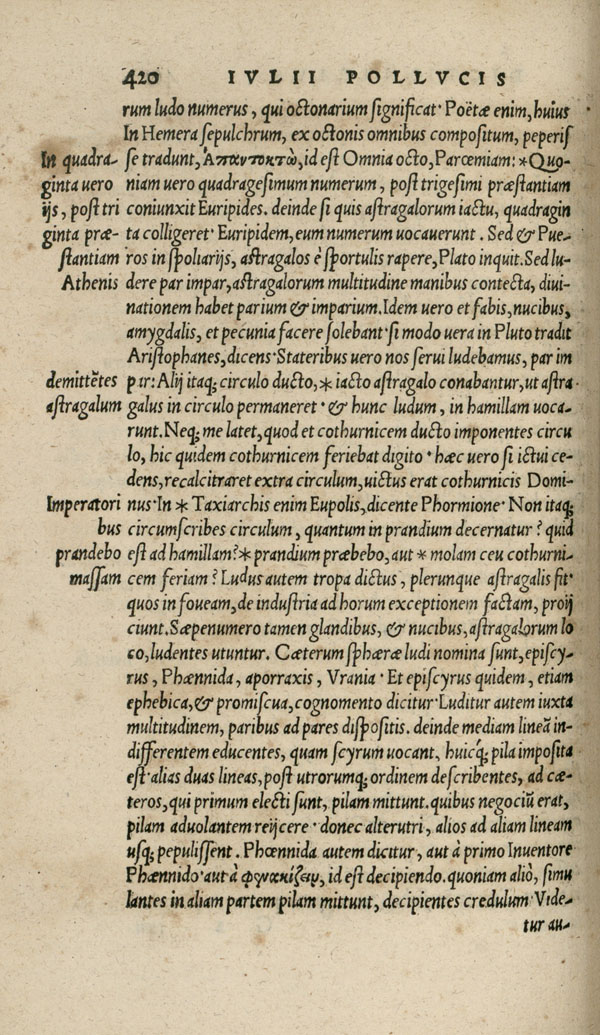 420 IVLII POLLVCIS
rum ludo numerus, qui octonarium significat· Poëtæ enim, huius
In Hemera sepulchrum, ex octonis omnibus compositum, peperis
In quadra- se tradunt, Ἀπαντοκτὼ, id est Omnia octo, Parœmiam: *Quo-
ginta uero niam uero quadragesimum numerum, post trigesimi præstantiam
ijs, post tri coniunxit Euripides. deinde si quis astragalorum iactu, quadragin
ginta præ- ta colligeret· Euripidem, eum numerum uocauerunt. Sed & Pue-
stantiam ros in spoliarijs, astragalos è sportulis rapere, Plato inquit. Sed lu-
Athenis dere par impar, astragalorum multitudine manibus contecta, diui-
nationem habet parium & imparium. Idem uero et fabis, nucibus,
amygdalis, et pecunia facere solebant· si modo uera in Pluto tradit
Aristophanes, dicens· Stateribus uero nos serui ludebamus, par im
demittẽtes par: Alij itaq; circulo ducto, * iacto astragalo conabantur, ut astra-
astragalum galus in circulo permaneret· & hunc ludum, in hamillam uoca-
runt. Neq; me latet, quod et cothurnicem ducto imponentes circu
lo, hic quidem cothurnicem feriebat digito· hæc uero si ictui ce-
dens, recalcitraret extra circulum, uictus erat cothurnicis Domi-
Imperatori nus· In * Taxiarchis enim Eupolis, dicente Phormione· Non itaq;
bus circumscribes circulum, quantum in prandium decernatur? quid
prandebo est ad hamillam? * prandium præbebo, aut * molam ceu cothurni-
massam cem feriam? Ludus autem tropa dictus, plerunque astragalis fit·
quos in foueam, de industria ad horum exceptionem factam, proij
ciunt. Sæpenumero tamen glandibus, & nucibus, astragalorum lo
co, ludentes utuntur. Cæterum sphæræ ludi nomina sunt, episcy-
rus, Phænnida, aporraxis, Vrania· Et episcyrus quidem, etiam
ephebica, & promiscua, cognomento dicitur· Luditur autem iuxta
multitudinem, paribus ad pares dispositis. deinde mediam lineã in-
differentem educentes, quam scyrum uocant, huicq́; pila imposita
est· alias duas lineas, post utrorumq; ordinem describentes, ad cæ-
teros, qui primum electi sunt, pilam mittunt. quibus negociũ erat,
pilam aduolantem reijcere· donec alterutri, alios ad aliam lineam
usq; pepulissent. Phœnnida autem dicitur, aut à primo Inuentore
Phænnido· aut à φενακίζειν, id est decipiendo. quoniam aliò, simu
lantes in aliam partem pilam mittunt, decipientes credulum· Vide-
tur au-